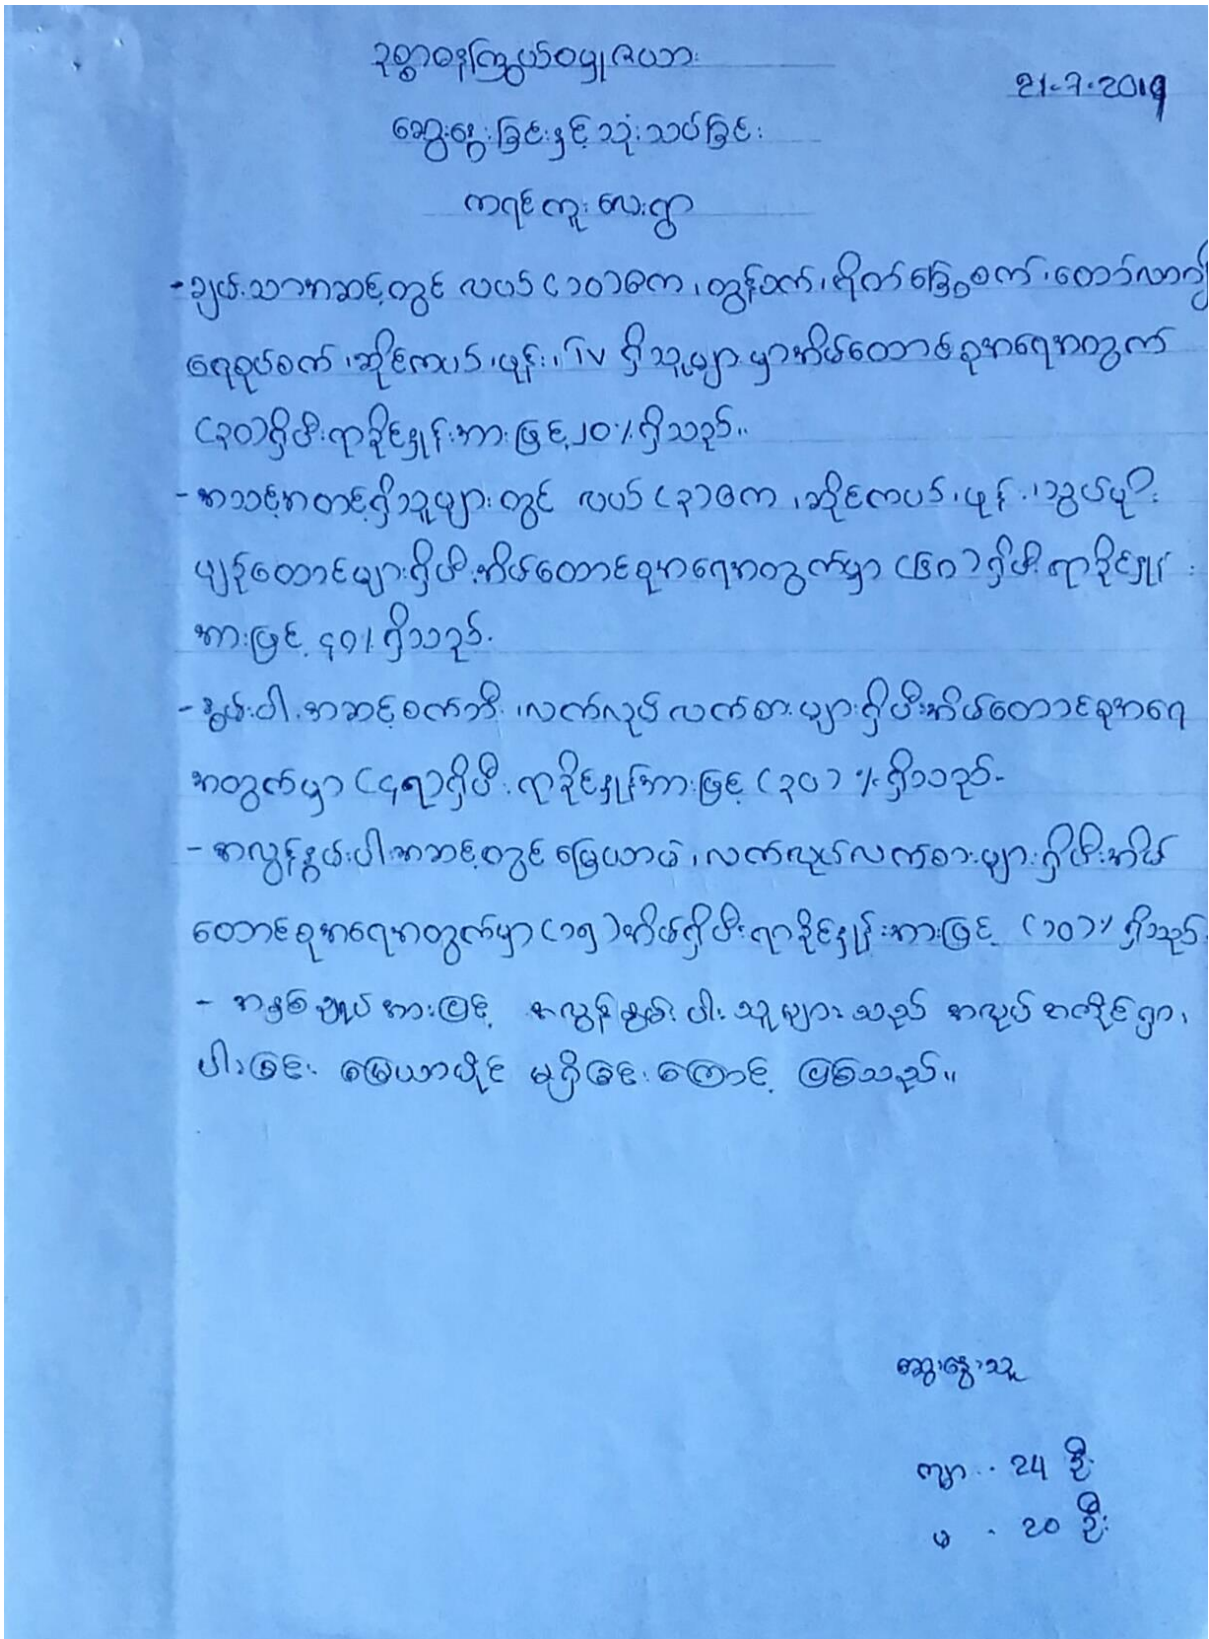 ဥစ္စာဓနကြွယ်ဝမှုဇယား
21.7.2019
ဆွေးနွေးခြင်းနှင့်သုံးသပ်ခြင်း
ကရင်ကူးလေးရွာ
- ချမ်းသာအဆင့်တွင် လယ် (၁၀)ဧက၊ တွန်စက်၊ ရိုက်ခြွေစက်၊ တော်လာဂျီ
ရေစုပ်စက်၊ ဆိုင်ကယ်၊ ဖုန်း၊ TV ရှိသူများမှာအိမ်ထောင်စုအရေအတွက်
(၃၀)ရှိပီးရာခိုင်နှုန်းအားဖြင့် ၂၀% ရှိသည်။
- အသင့်အတင့်ရှိသူများတွင် လယ် (၃)ဧက၊ ဆိုင်ကယ်၊ ဖုန်း၊ သွယ်မိုး
မျဉ်ထောင်များရှိပီးအိမ်ထောင်စုအရေအတွက်မှာ (၆၀)ရှိပီးရာခိုင်နှုန်း
အားဖြင့် ၄၀% ရှိသည်.
- နွမ်းပါးအဆင့်စက်ဘီး၊ လက်လုပ်လက်စားများရှိပီးအိမ်ထောင်စုအရေ
အတွက်မှာ (၄၅)ရှိပီးရာခိုင်နှုန်းအားဖြင့် (၃၀)% ရှိသည်-
- အလွန်နွမ်းပါးအဆင့်တွင် မြေယာမဲ့၊ လက်လုပ်လက်စားများရှိပီးအိမ်
ထောင်စုအရေအတွက်မှာ (၁၅)အိမ်ရှိပီးရာခိုင်နှုန်းအားဖြင့် (၁၀)% ရှိသည်.
- အနှစ်ချုပ်အားဖြင့် အလွန်နွမ်းပါးသူများသည် အလုပ်အကိုင်ရှား
ပါးခြင်း မြေယာပိုင် မရှိခြင်းကြောင့် ဖြစ်သည်။
ဆွေးနွေးသူ
ကျား - 24 ဦး
မ - 20 ဦး